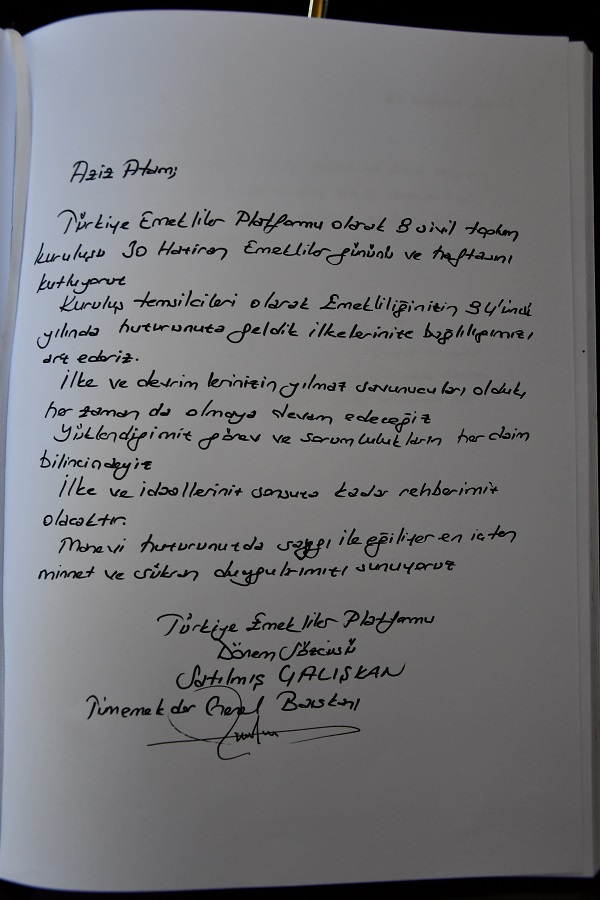 Aziz Atam;
Türkiye Emekliler Platformu olarak 8 sivil toplum
kuruluşu 30 Haziran Emekliler gününü ve haftasını
kutluyoruz
Kuruluş temsilcileri olarak Emekliliğinizin 94'üncü
yılında huzurunuza geldik ilkelerinize bağlılığımızı
arz ederiz.
İlke ve devrimlerinizin yılmaz savunucuları olduk,
her zaman da olmaya devam edeceğiz
Yüklendiğimiz görev ve sorumlulukların her daim
bilincindeyiz
İlke ve idealleriniz sonsuza kadar rehberimiz
olacaktır.
Manevi huzurunuzda saygı ile eğiliyor en içten
minnet ve şükran duygularımızı sunuyoruz
Türkiye Emekliler Platformu
Dönem Sözcüsü
Satılmış ÇALIŞKAN
Tümemekder Genel Başkanı